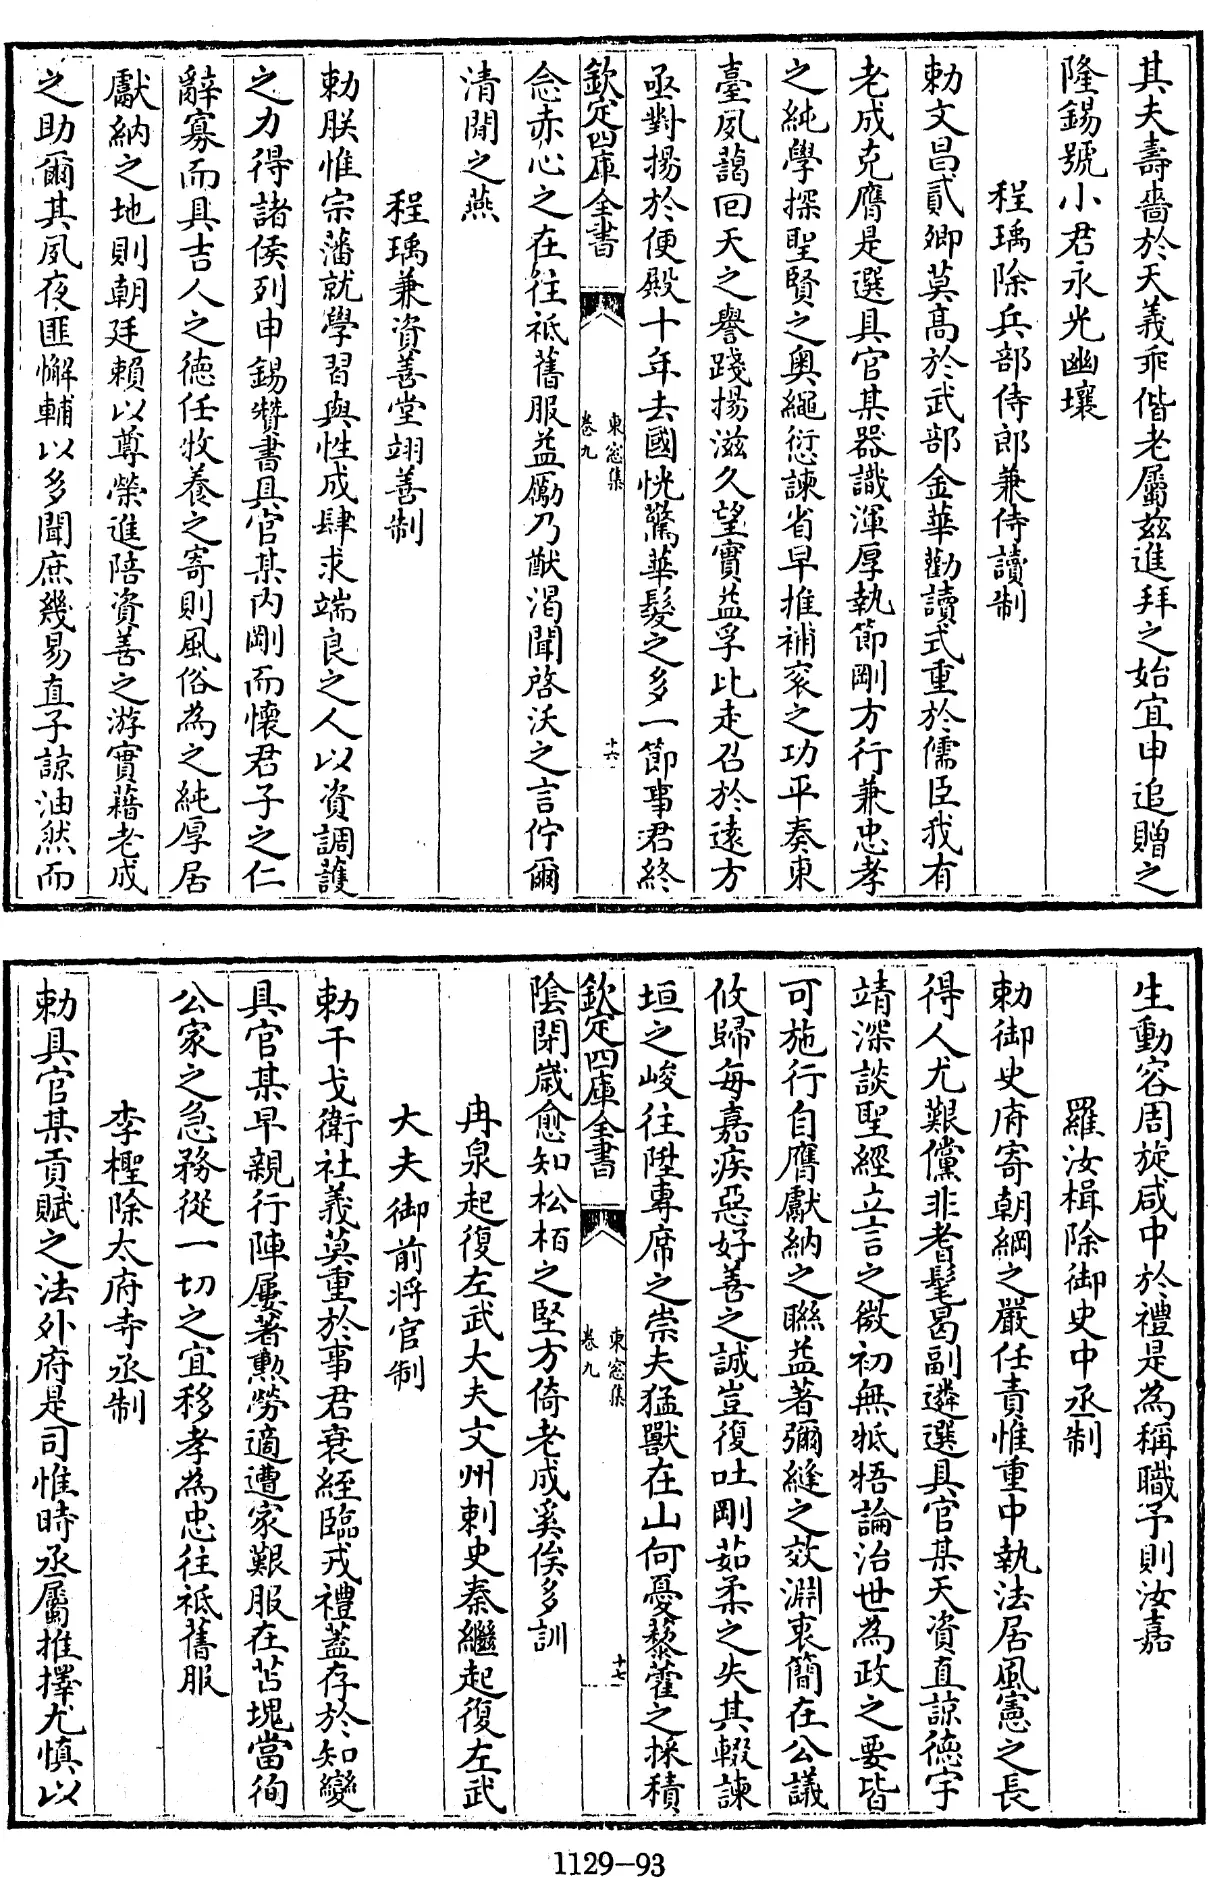 其夫壽嗇於天義乖偕老屬兹進拜之始宜申追贈之
隆錫號小君永光幽壤
程瑀除兵部侍郎兼侍讀制
勅文昌貳卿莫髙於武部金華勸讀式重於儒臣我有
老成克膺是選具官某器識渾厚執節剛方行兼忠孝
之純學探聖賢之奥繩愆諫省早推補衮之功平奏東
臺夙藹回天之譽踐揚滋久望實益孚比走召於逺方
亟對揚於便殿十年去國恍驚華髮之多一節事君終
欽定四庫全書
東窓集
卷九
十六
念赤心之在往祗舊服益勵乃猷渴聞啓沃之言佇爾
清閒之燕
程瑀兼資善堂翊善制
勅朕惟宗藩就學習與性成肆求端良之人以資調護
之力得諸侯列申錫贊書具官某内剛而懐君子之仁
辭寡而具吉人之徳任牧養之寄則風俗為之純厚居
獻納之地則朝廷賴以尊榮進陪資善之游實藉老成
之助爾其夙夜匪懈輔以多聞庶幾易直子諒油然而
生動容周旋咸中於禮是為稱職予則汝嘉
羅汝楫除御史中丞制
勅御史府寄朝綱之嚴任責惟重中執法居風憲之長
得人尤艱儻非耆髦曷副遴選具官某天資直諒徳宇
靖深談聖經立言之微初無牴牾論治世為政之要皆
可施行自膺獻納之聯益著彌縫之效淵衷簡在公議
攸歸每嘉疾惡好善之誠豈復吐剛茹柔之失其輟諫
垣之峻往陞專席之崇夫猛獸在山何憂藜藿之採積
欽定四庫全書
東窓集
卷九
十七
陰閉嵗愈知松栢之堅方倚老成奚俟多訓
冉泉起復左武大夫文州刺史秦繼起復左武
大夫御前将官制
勅干戈衛社義莫重於事君衰絰臨戎禮蓋存於知變
具官某早親行陣屢著勲勞適遭家艱服在苫塊當徇
公家之急務從一切之宜移孝為忠往祗舊服
李檉除太府寺丞制
勅具官某貢賦之法外府是司惟時丞屬推擇尤慎以
1129-93